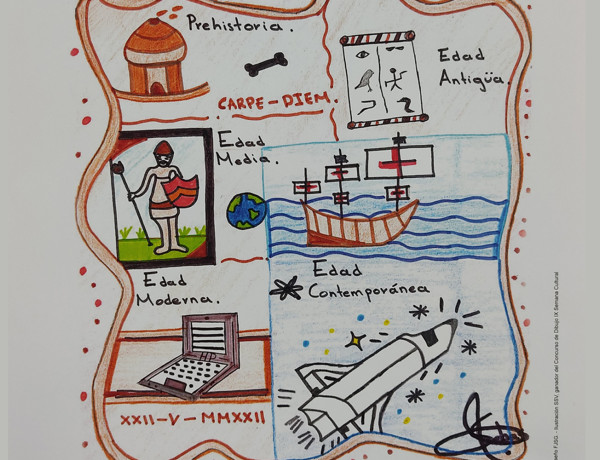 Prehistoria.
Edad
Antigüa.
CARPE-DIEM.
Edad
Media.
Edad
Moderna.
Edad
Contemporánea
HP
XXII-V-MMXXII
FJSG - Ilustración SSV, ganador del Concurso de Dibujo IX Semana Cultural